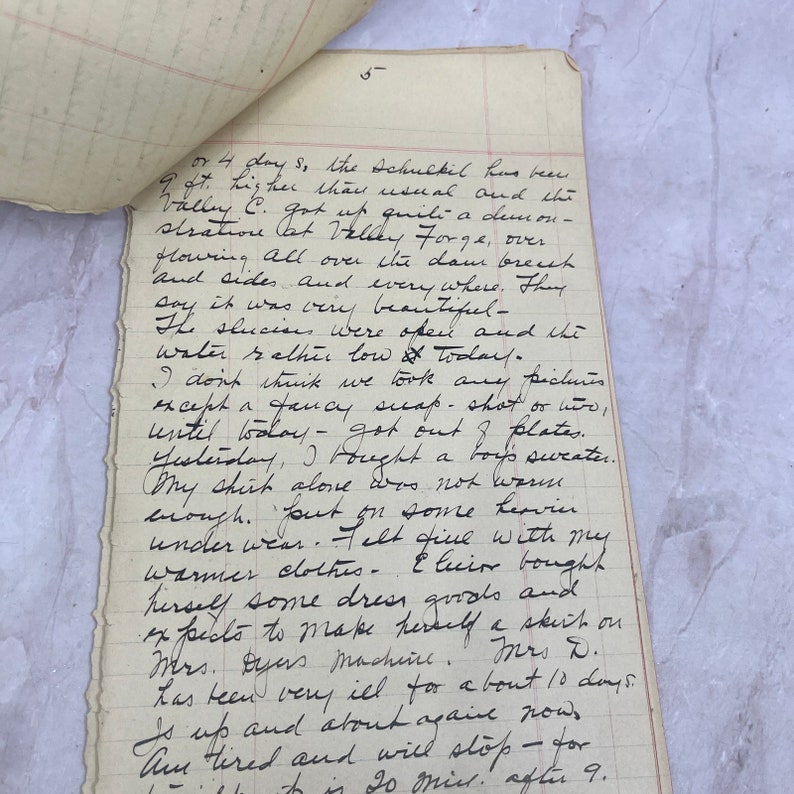 5
or 4 days, the schulkil has been
9 ft. higher than usual and the
Valley C. got up quite a demon-
stration at Valley Forge, over
flowing all over the dam breast
and sides and everywhere. They
say it was very beautiful-
The sluices were open and the
water rather low today.
I don't think we took any pictures
except a fancy snap-shot or two,
until today- got out of plates.
Yesterday, I bought a boy's sweater.
My shirt alone was not warm
enough. put on some heavier
underwear. Felt fine with my
warmer clothes- bought
herself some dress goods and
expects to make herself a skirt on
Mrs. Dyers Machine. Mrs D.
has been very ill for about 10 days.
Is up and about again now.
Am tired and will stop- for
is 20 min. after 9.